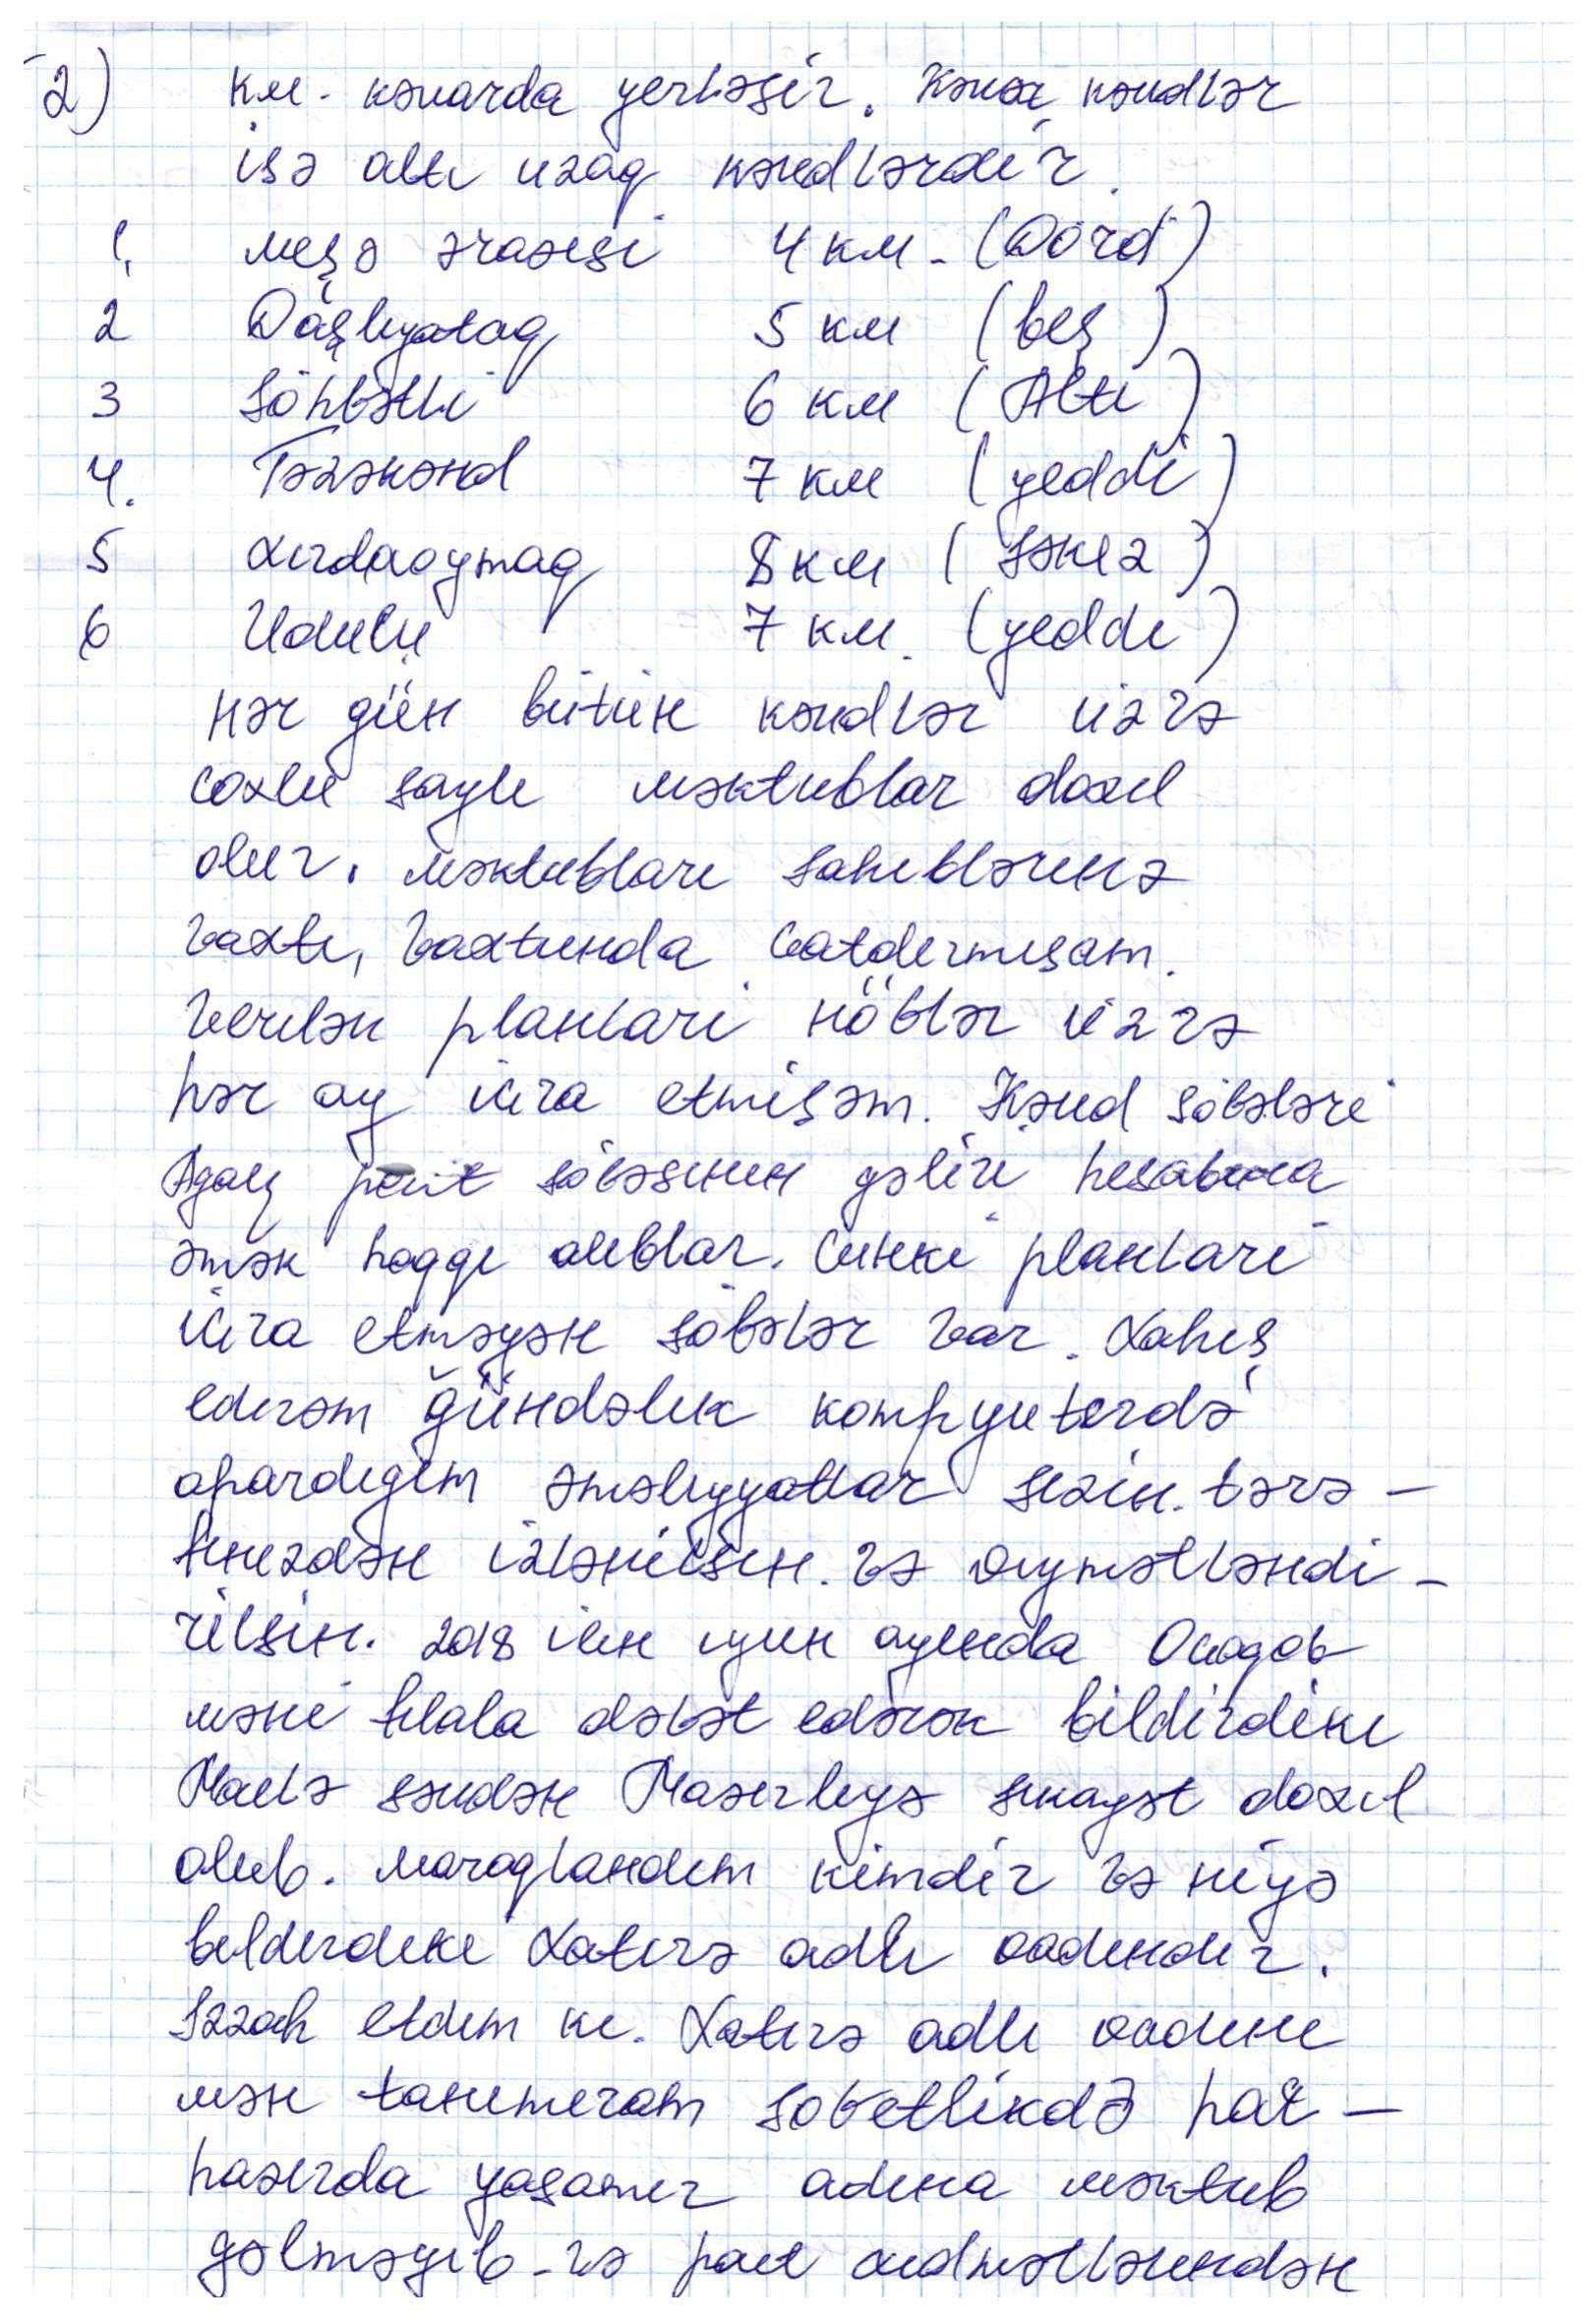 2) км. kənarda yerləşir. Kənar kəndlər
isə altı uzaq kəndlərdir.
1. meşə ərazisi 4 км - (Dörd)
2 Daşlıyataq 5 км (beş)
3 Söhbətli 6 км (Altı)
4. Təzəkənd 7 км (yeddi)
5 Xırdaoymaq 8 км (səkiz)
6 Udulu 7 км. (yeddi)
Hər gün bütün kəndlər üzrə
coxlu saylı məktublar daxil
olur. məktubları sahiblərinə
vaxtı, vaxtında catdırmışam.
Verilən planları növlər üzrə
hər ay icra etmişəm. Kənd şöbələri
poçt şöbəsinin gəliri hesabına
əmək haqqı alıblar. Cunki planları
icra etməyən şöbələr var. Xahiş
edirəm gündəlik kompyuterdə
apardığım əməliyyatlar sizin. tərə-
finizdən izlənilsin. və qiymətləndi-
rilsin. 2018 ilin iyun ayında
məni filala dəvət edərək bildirdiki
səndən Nazirliyə şikayət daxil
olub. maraqlandım kimdir və niyə
bildirdiki Xatirə adlı qadındır.
İzzah etdim ki. Xatirə adlı qadını
mən tanımıram sovetlikdə hal-
hazırda yaşamır adına məktub
gəlməyib və poçt xidmətlərindən